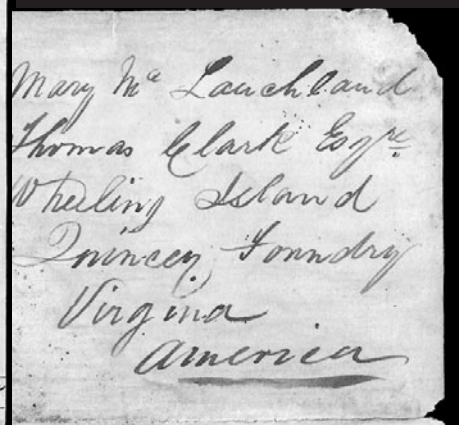 Mary Mc Lauchland
Thomas Clark Esqre
Wheeling Island
Quincey Foundry
Virginia
America